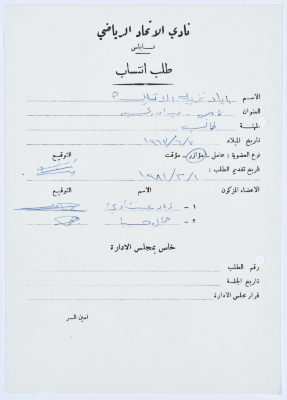 نادي الاتحاد الرياضي
نابلس
طلب انتساب
الاسم
العنوان نابلس -
المهنة طالب
تاريخ الميلاد ١٩٦٣/٦/٧
نوع العضوية : عامل - مؤازر - مؤقت التوقيع
تاريخ تقديم الطلب : ١٩٨١/٣/١
الاعضاء المزكون الاسم التوقيع
١ -
٢ -
خاص بمجلس الادارة
رقم الطلب
تاريخ الجلسة
قرار مجلس الادارة
امين السر